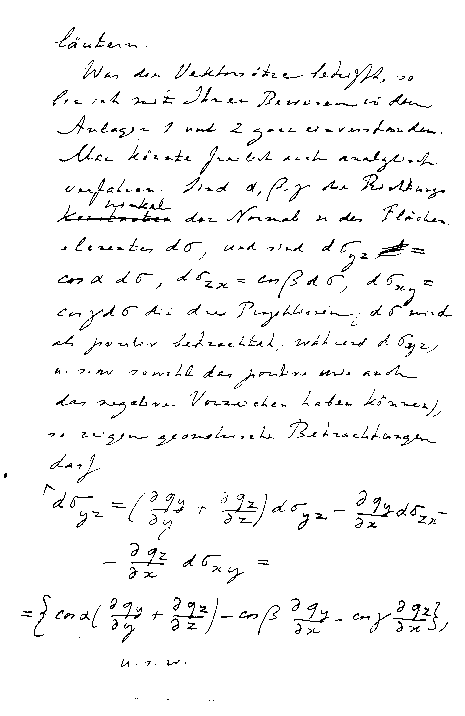 läutern.
Was den Vektorsätze betrifft, so
bin ich mit Ihren Beweisen in den
Anlagen 1 und 2 ganz einverstanden.
Man könnte freilich auch analytisch
verfahren. Sind α, β, γ die Richtungs
winkel
der Normale n des Flächen
elementes dσ, und sind dσ_yz =
cos α dσ, dσ_zx = cos β dσ, dσ_xy =
cos γ dσ die drei Projektionen, dσ wird
als positiv betrachtet, während dσ_yz,
u. s. w. sowohl das positive wie auch
das negative Vorzeichen haben können),
so zeigen geometrische Betrachtungen
dasz
dσ_yz = (∂q_y/∂y + ∂q_z/∂z) dσ_yz − ∂q_y/∂x dσ_zx −
− ∂q_z/∂x dσ_xy =
= {cos α (∂q_y/∂y + ∂q_z/∂z) − cos β ∂q_y/∂x − cos γ ∂q_z/∂x},
u. s. w.